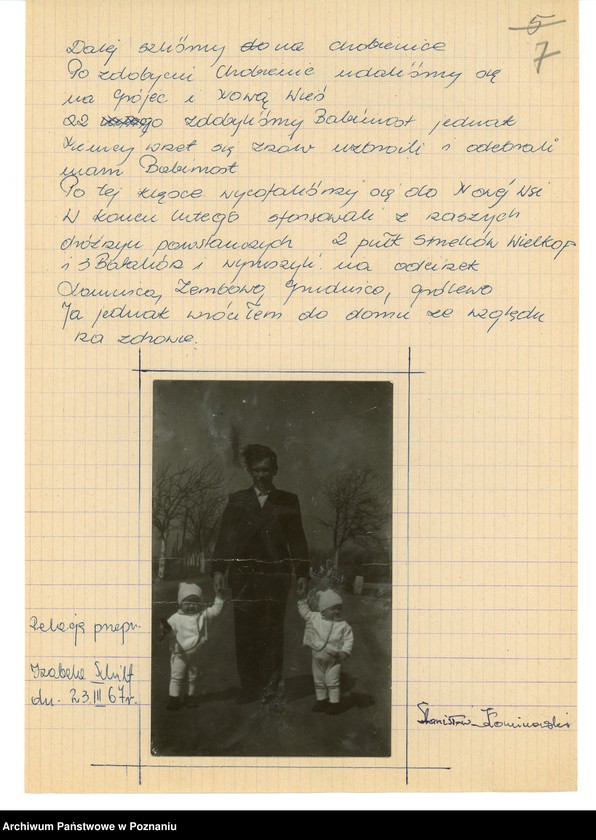 5
7
Dalej szliśmy do na Chobienice
Po zdobyciu Chobienic udaliśmy się
na Grójec i Nową Wieś
22 zdobyliśmy Babimost jednak
Niemcy wnet się znow uzbroili i odebrali
nam Babimost
Po tej klęsce wycofaliśmy się do Nowej Wsi
W koncu lutego sformowali z naszych
dróżzyn powstanczych 2 pułk Strzelców Wielkop
i 3 Batalión i wyruszyli na odcinek
Łomnica, Zembowo, Grudnico, grólewo
Ja jednak wróciłem do domu ze względu
na zdrowie.
Relację przepr.
Izabela
dn. 23 III 67r.
Stanisław Kominowski
Archiwum Państwowe w Poznaniu